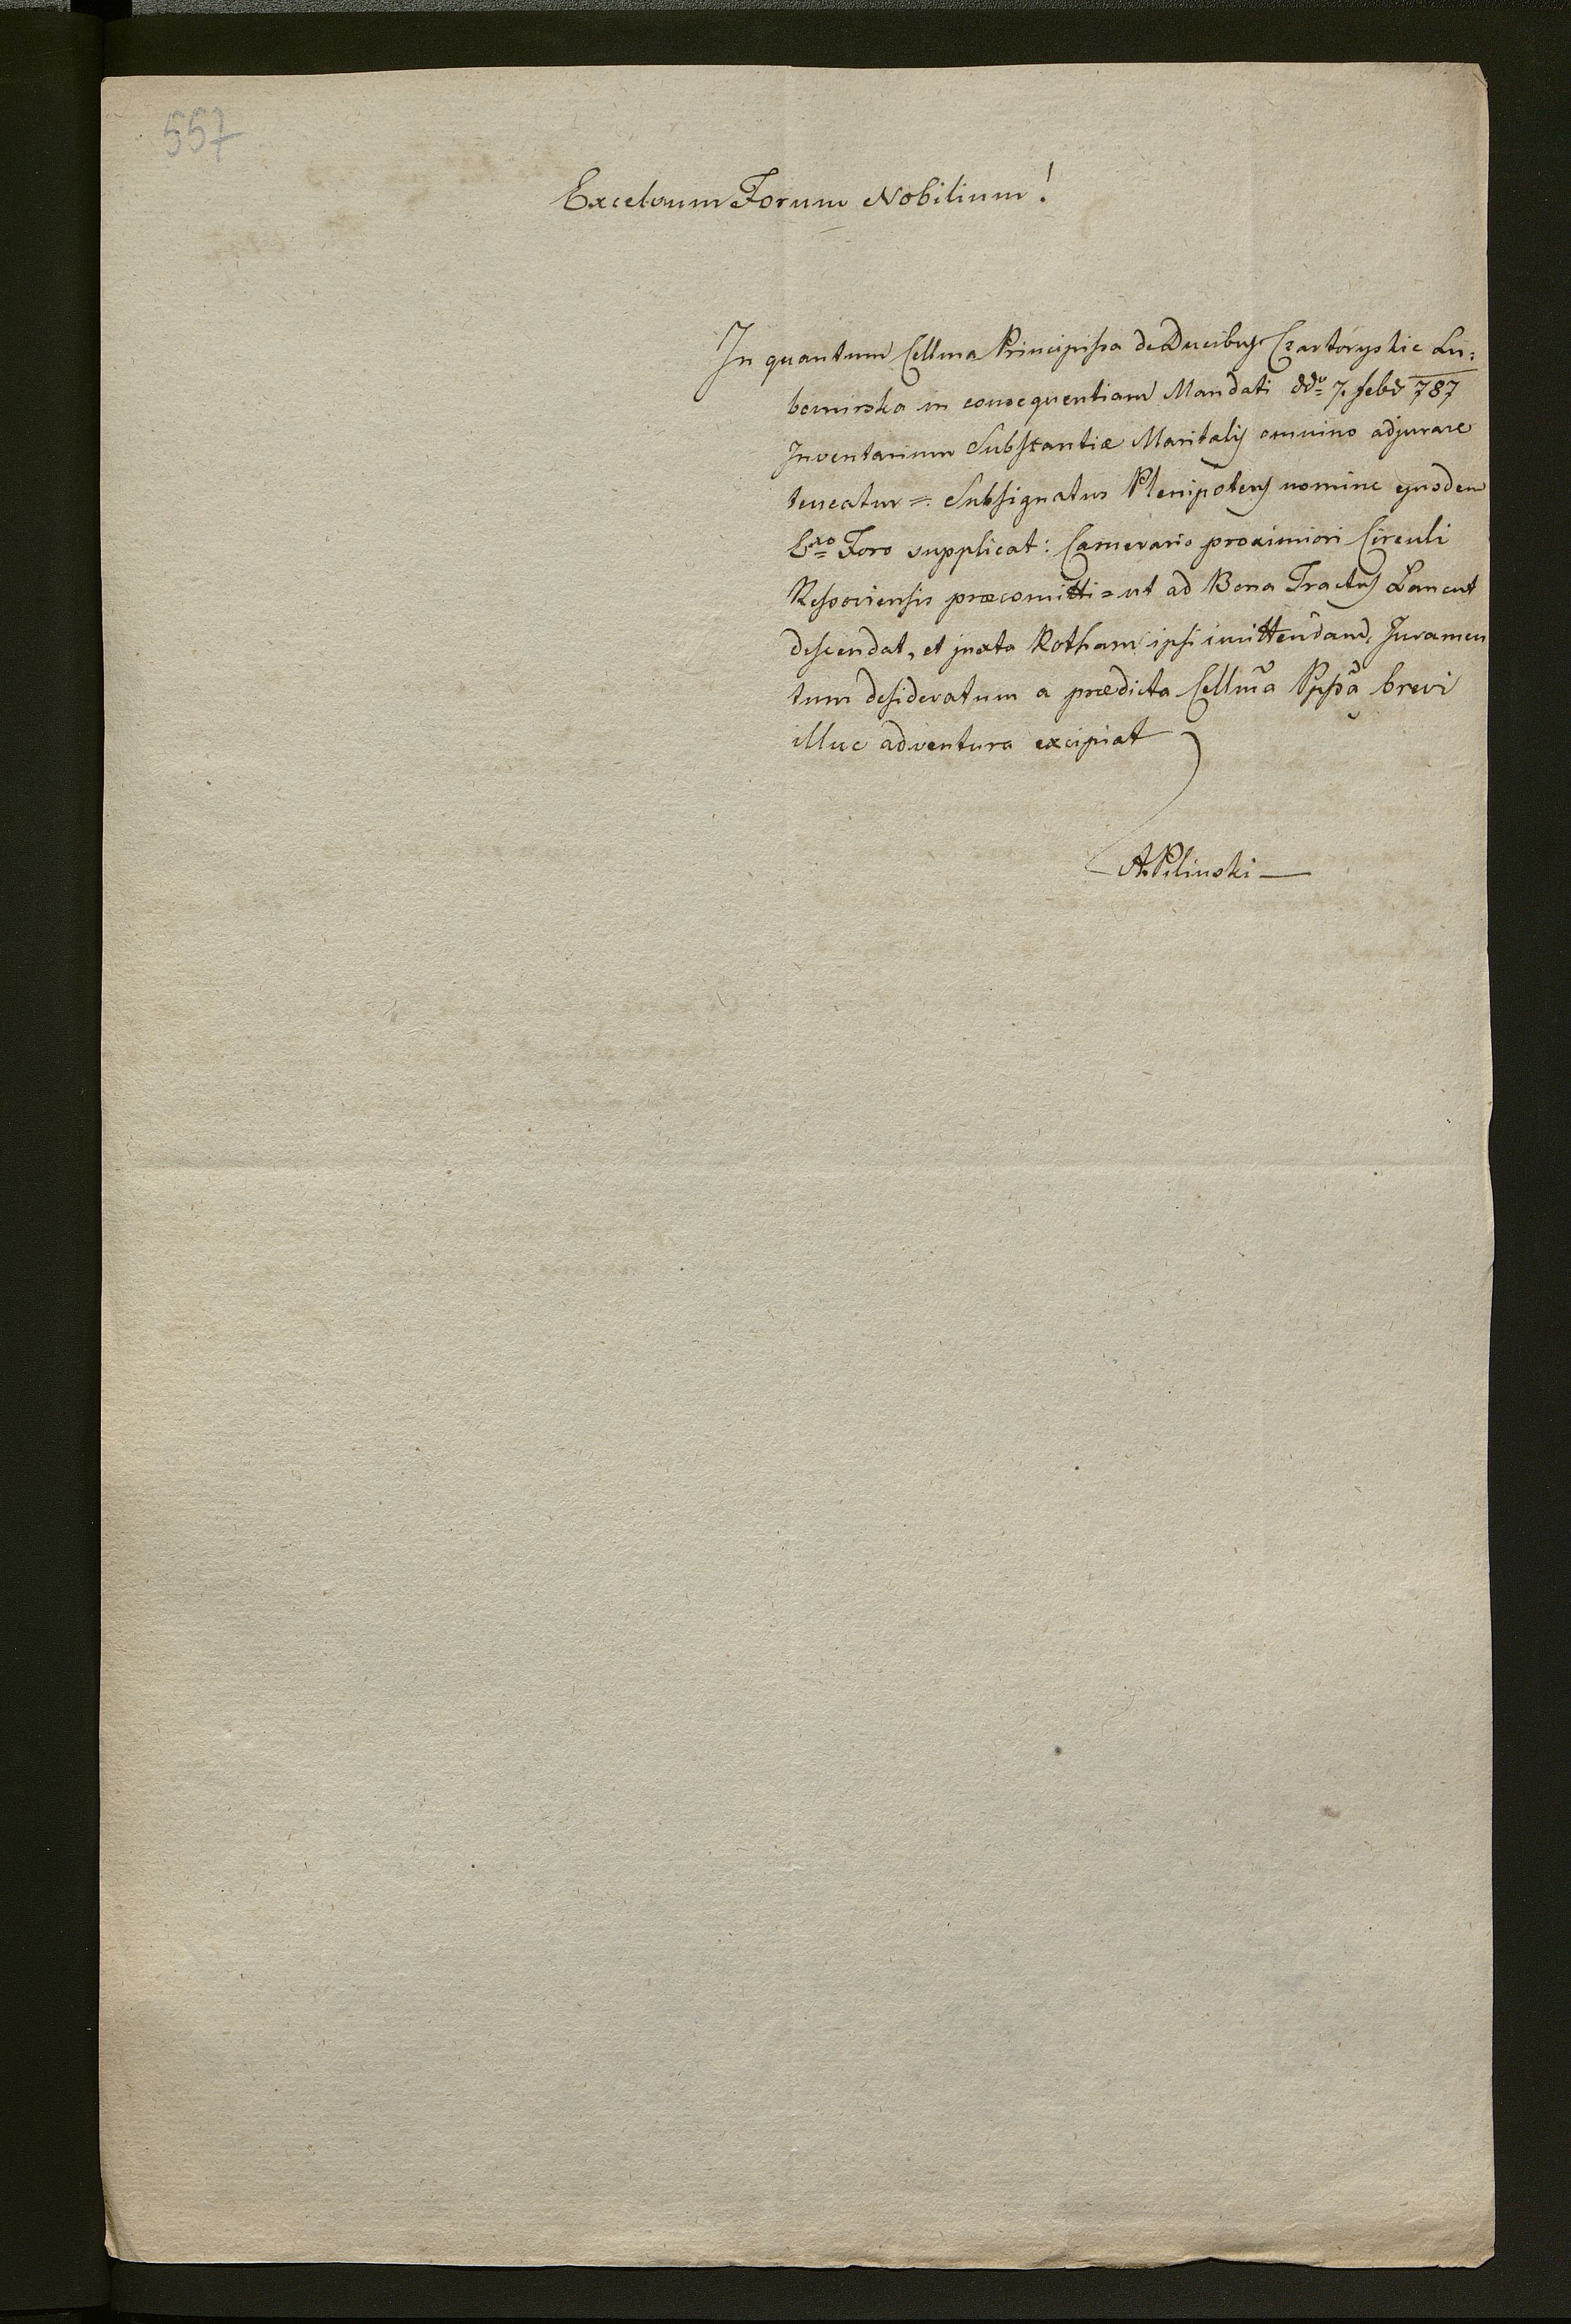 557
Excelsum Forum Nobilium!
In quantum Cellma Principissa de Ducibus Czartoryskie Lu=
bomirska in consequentiam Mandati ddo 7. febr 787
Inventarium Substantiæ Maritalis omnino adjurare
teneatur =. Subsignatus Plenipotens nomine ejusdem
Exo Foro supplicat: Camerario proximiori Circuli
Ressoviensis præcomitti = ut ad Bona Tractus Lancut
descendat, et juxta Rotham ipsi imittendam, Juramen
tum desideratum a prædicta Cellma Ppssa brevi
illuc adventura excipiat
A. Pilinski